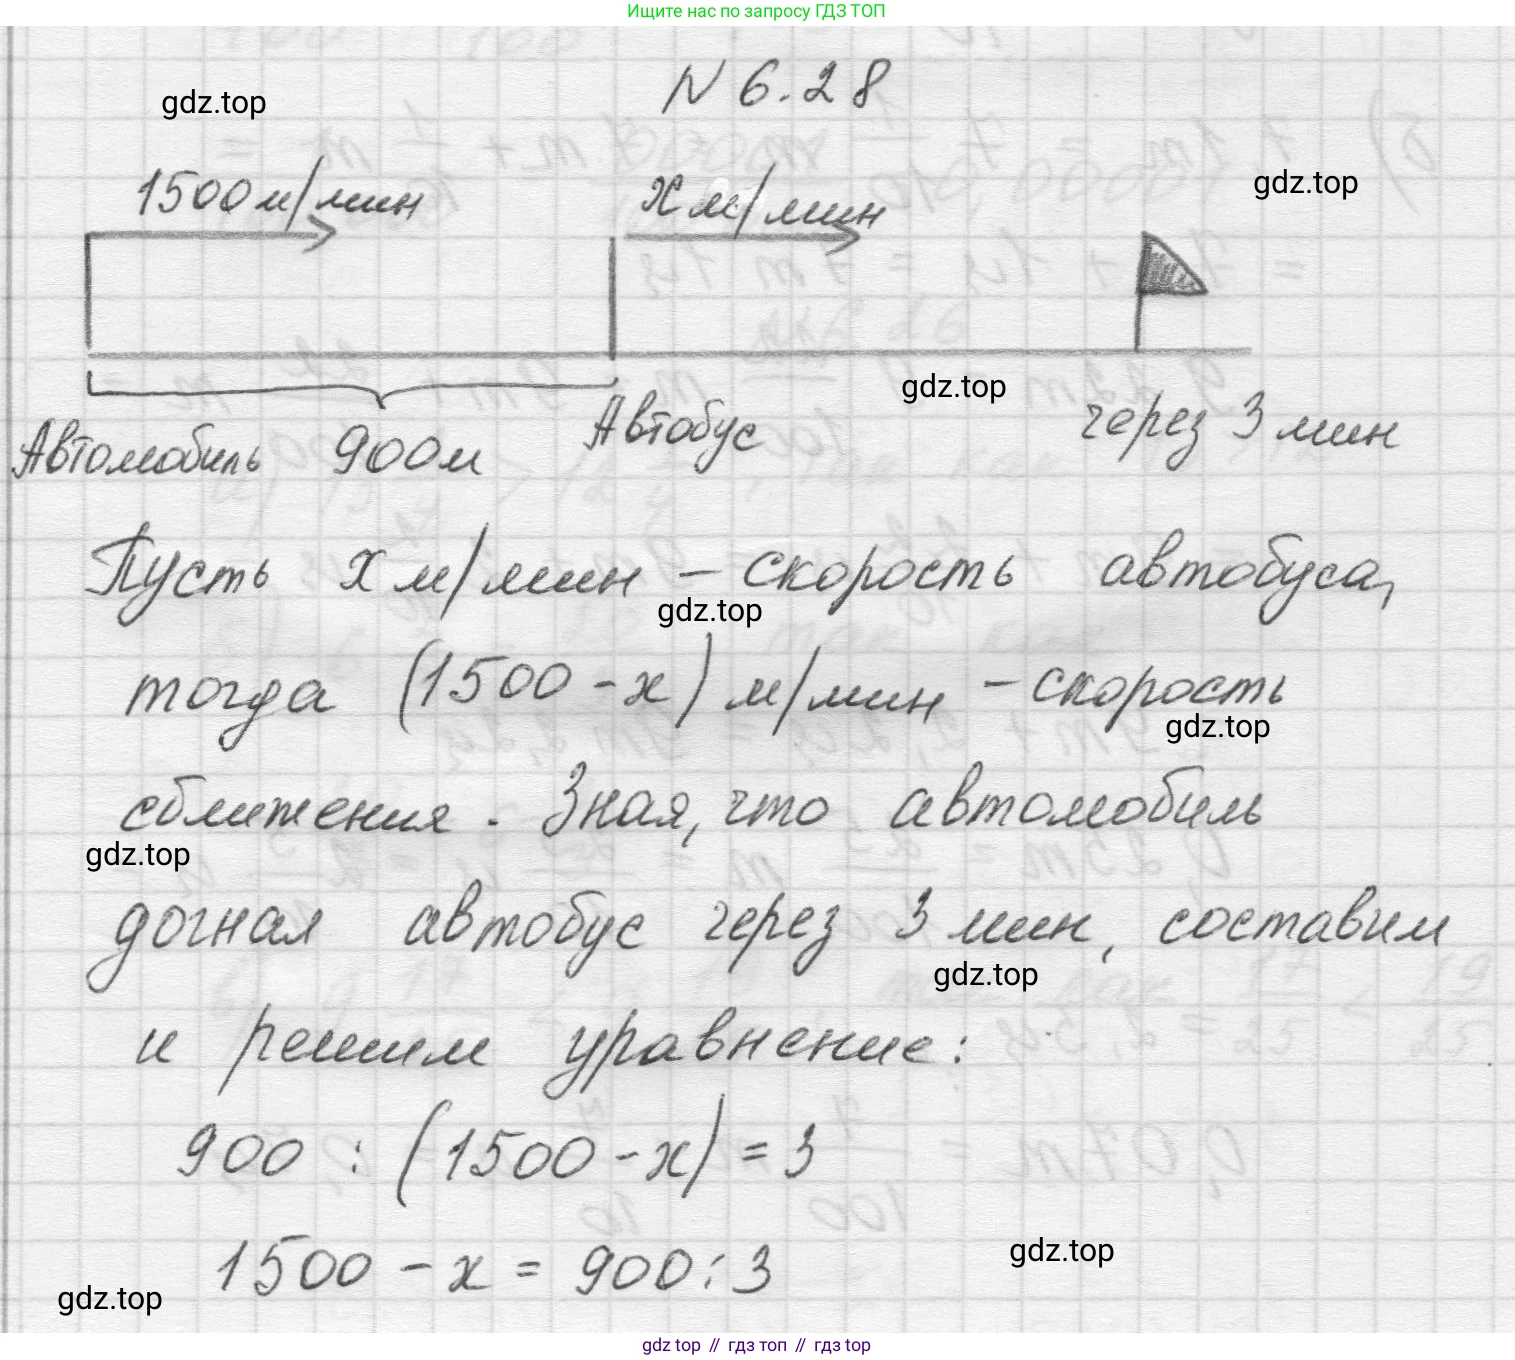 Ищите нас по запросу ГДЗ ТОП
N 6.28
gdz.top
1500 м/мин
x м/мин
gdz.top
Автомобиль 900 м
Автобус
gdz.top
через 3 мин
Пусть x м/мин – скорость автобуса,
gdz.top
тогда (1500 - x) м/мин – скорость
gdz.top
сближения. Зная, что автомобиль
gdz.top
догнал автобус через 3 мин, составим
gdz.top
и решим уравнение:
900 : (1500 - x) = 3
1500 - x = 900 : 3
gdz.top
gdz.top
gdz top // гдз топ // gdz top